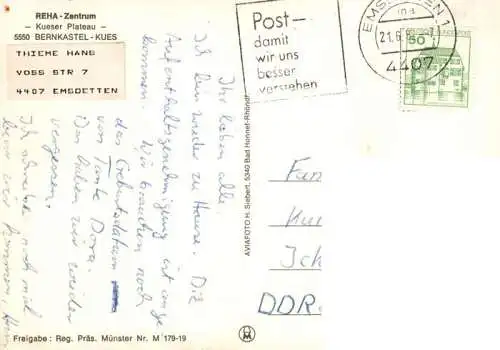 REHA-Zentrum
- Kueser Plateau -
5550 BERNKASTEL-KUES
THIEME HANS
VOSS STR 7
4407 EMSDETTEN
Post-
damit
wir uns
besser
verstehen
EMSDETTEN 1
21.6.
4407
50
Ihr lieben alle.
Ich bin wieder zu Hause. Die
Aufenthaltsgenehmigung ist ange
kommen. Wir brauchen noch
das Geburtsdatum
von Tante Dora.
Das haben wir wieder
vergessen.
Ich schreibe noch mal
bevor wir kommen, Hans
AVIAFOTO H. Siebert, 5340 Bad Honnef-Rhöndf
Fam
Ku
Ich
DDR-
Freigabe: Reg. Präs. Münster Nr. M 179-19